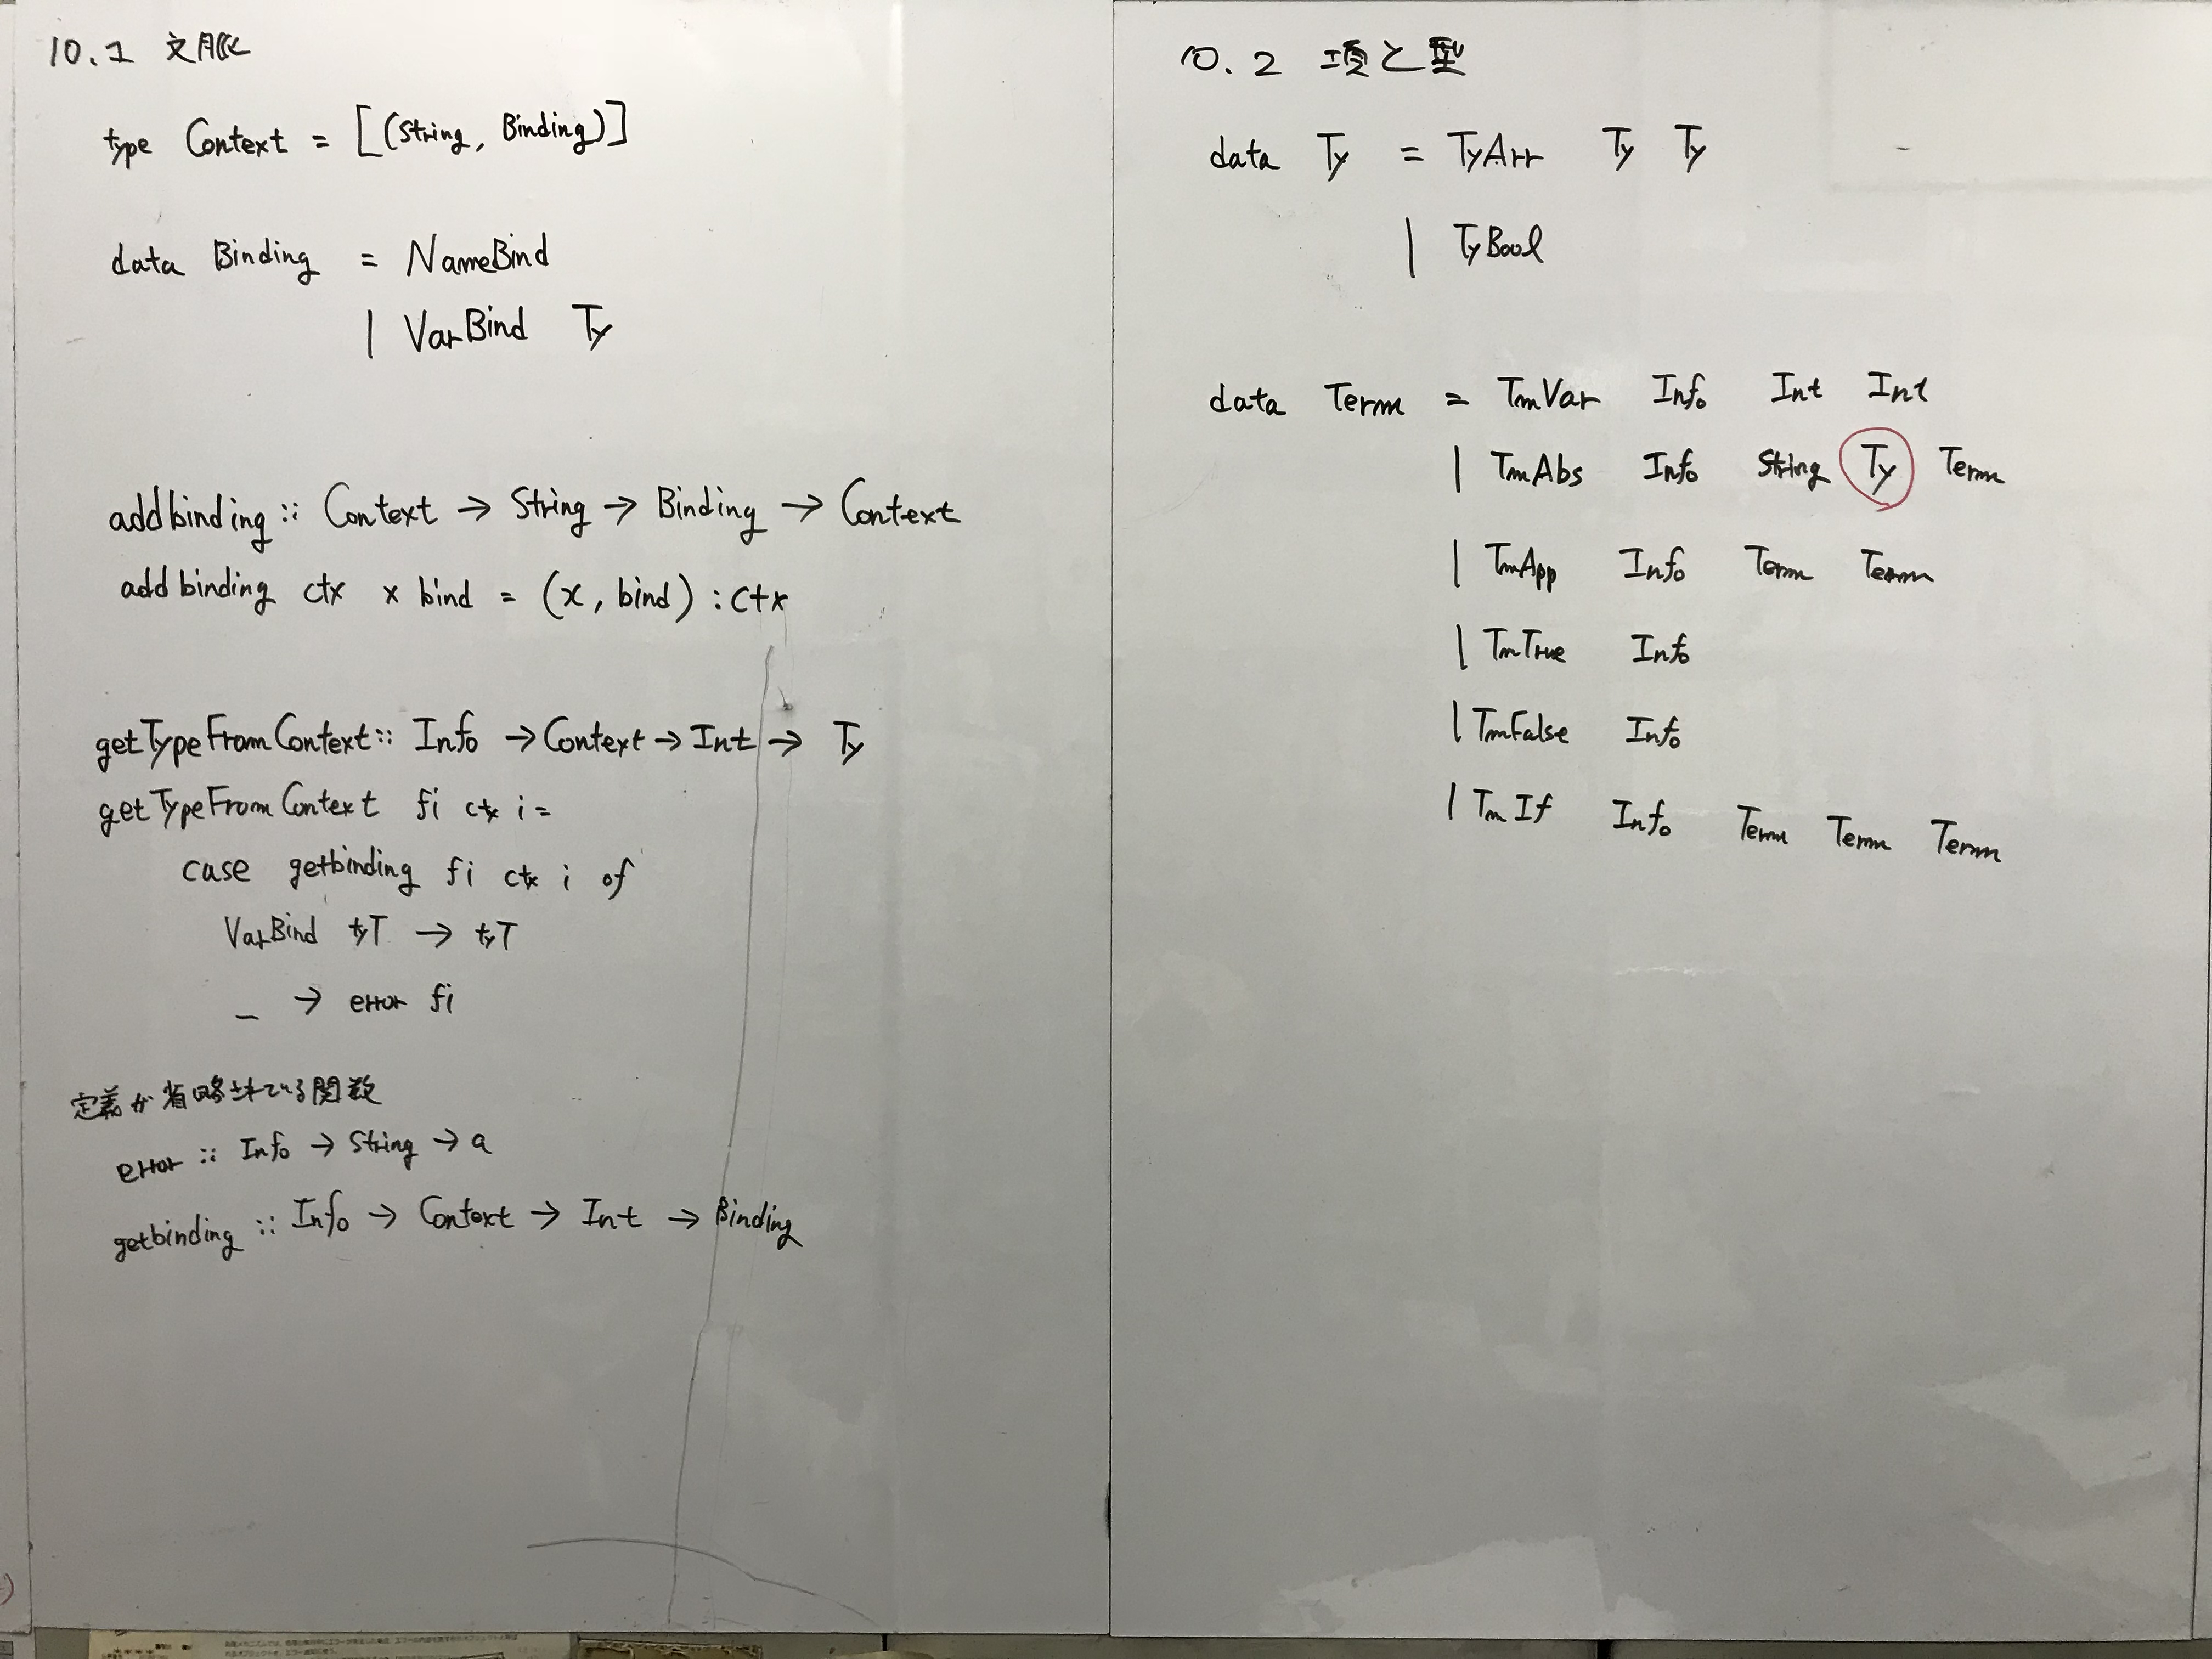 10.1 文脈
type Context = [(String, Binding)]
data Binding = NameBind
| VarBind Ty
addbinding :: Context → String → Binding → Context
addbinding ctx x bind = (x, bind) : ctx
getTypeFromContext :: Info → Context → Int → Ty
getTypeFromContext fi ctx i =
case getbinding fi ctx i of
VarBind tyT → tyT
_ → error fi
定義が省略されている関数
error :: Info → String → a
getbinding :: Info → Context → Int → Binding
10.2 項と型
data Ty = TyArr Ty Ty
| TyBool
data Term = TmVar Info Int Int
| TmAbs Info String Ty Term
| TmApp Info Term Term
| TmTrue Info
| TmFalse Info
| TmIf Info Term Term Term